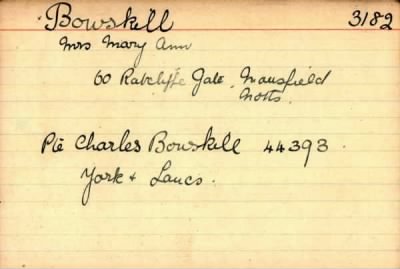 Bowskill 3182
Mrs Mary Ann
60 Ratcliffe Gate, Mansfield
Notts.
Pte Charles Bowskill 44393.
York & Lancs.